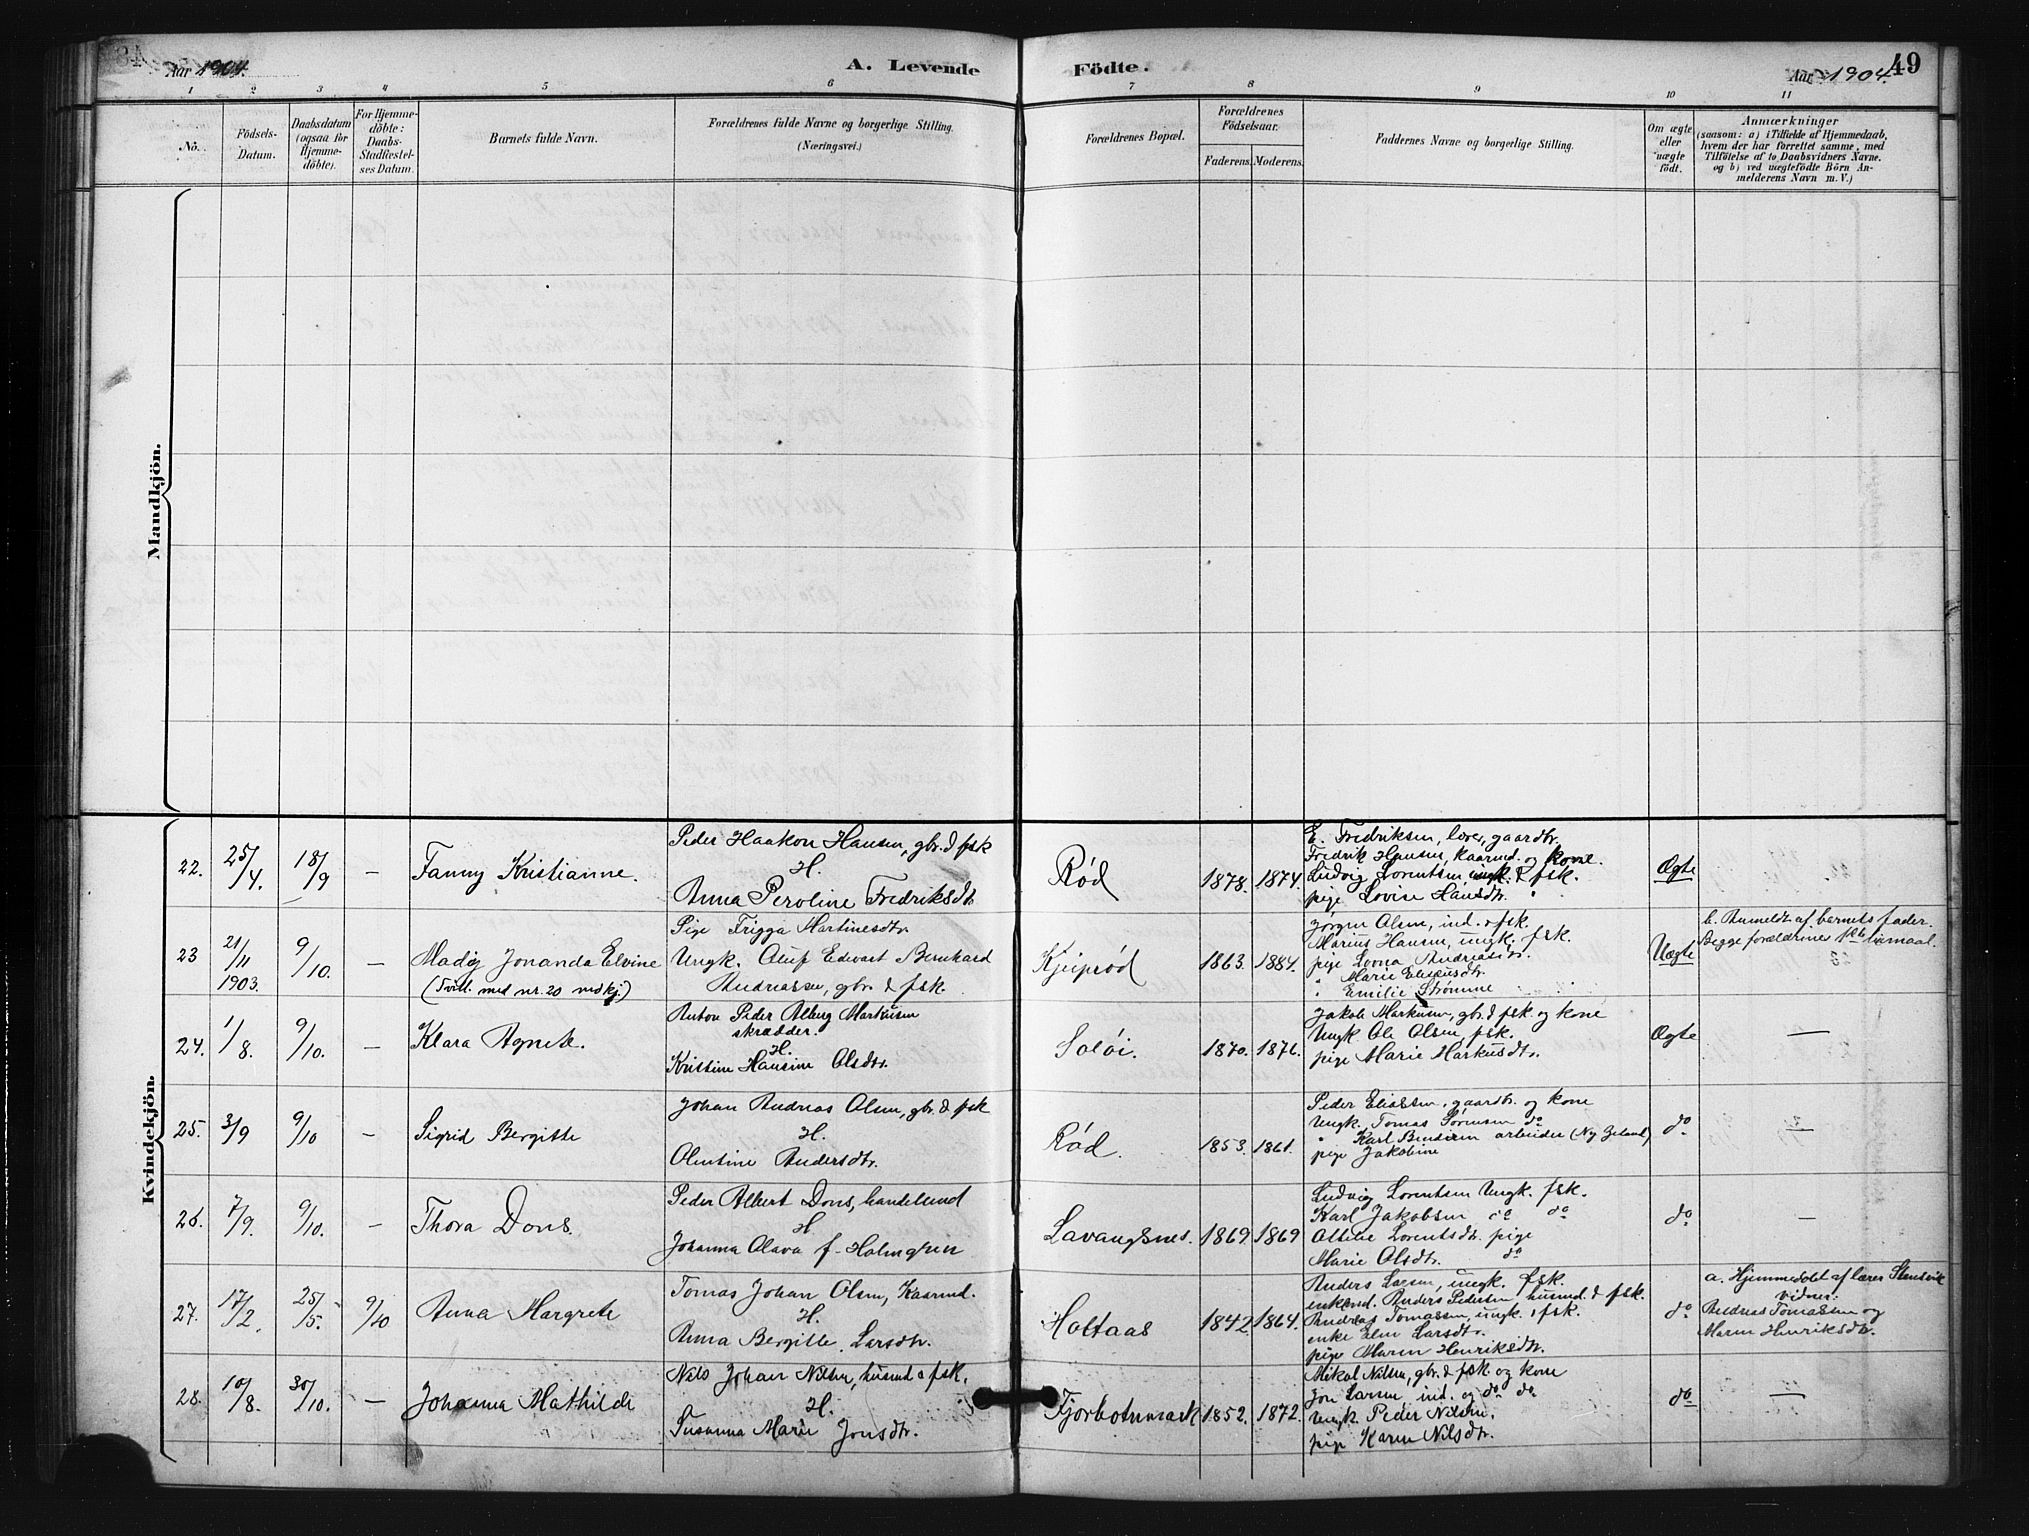 Aar 1904.
A. Levende
Födte.
Aar 1904.
49
1 2 3 4 5 6 7 8 9 10 11
No.
Födsels-
Datum.
Daabsdatum
(ogsaa for
Hjemme-
döbte).
For Hjemme-
döbte:
Daabs-
Stadfæstel-
ses Datum.
Barnets fulde Navn.
Forældrenes fulde Navne og borgerlige Stilling.
(Næringsvei.)
Forældrenes Bopæl.
Forældrenes
Födselsaar.
Faderens.
Moderens.
Faddernes Navne og borgerlige Stilling.
Om ægte
eller
uægte
födt.
Anmærkninger
(saasom: a) i Tilfælde af Hjemmedaab,
hvem der har forrettet samme, med
Tilföielse af to Daabsvidners Navne.
og b) ved uægtefödte Börn An-
melderens Navn m. V.)
Mandkjön.
Kvindekjön.
22. 25/4. 18/9 — Fanny Kristianne.
Peder Haakon Hansen, gbr. & fsk
H.
Anna Peroline Fredriksdtr.
Röd 1878. 1874.
E. Fredriksen, lærer, gaardbr.
Fredrik Hansen, kaarmd. og kone.
Ludvig Lorentsen ungk. & fsk.
pige Lovise Hansdtr.
Ægte
23 21/11 1903. 9/10. — Madöy Jonanda Elvine
(Tvill. med nr. 20 mdkj.)
Pige Frigga Martinesdtr.
Ungk. Oluf Edvart Bernhard
Andreassen, gbr. & fsk.
Kjeiprød 1863. 1884.
Jørgen Olsen, ind. & fsk.
Marius Hansen, ungk. fsk.
pige Lovna Andreasdtr.
" Marie Eliseusdtr.
" Emilie Strømme
Uægte
b. Anmeldt af barnets fader.
Begge forældrenes 1ste leiermaal.
24. 1/8. 9/10. — Klara Agnete.
Anton Peder Alberg Markusen
skrædder.
H.
Kristine Hansine Olsdtr.
Soløi. 1870. 1876.
Jakob Markusen, gbr. & fsk og kone
Ungk Ole Olsen, fsk.
pige Marie Markusdtr.
Ægte —
25. 3/9 9/10 — Sigrid Bergitte
Johan Andreas Olsen, gbr. & fsk
H.
Olentine Andersdtr.
Rød. 1853. 1861.
Peder Eliassen, gaardbr. og kone
Ungk. Tomas Sørensen do
" Karl Bendixen arbeider (Ny Zeland)
pige Jakobine
do —
26. 7/9. 9/10. — Thora Dons.
Peder Albert Dons, handelsmd
H
Johanna Olava f. Holmgren
Lavangsnes. 1869. 1869
Ludvig Lorentsen Ungk. fsk.
Karl Jakobsen do do
Ottilie Lorentsdtr. pige
Marie Olsdtr. do
do —
27. 17/2. 25/5. 9/10 Anna Margrete
Tomas Johan Olsen, Kaarmd.
H.
Anna Bergitte Larsdtr.
Holtaas 1842. 1864.
Anders Larsen, ungk. fsk.
enkemd. Anders Pedersen husmd. & fsk.
Andreas Tomassen, ungk. & fsk.
enke Elen Larsdtr.
pige Maren Henriksdtr.
do
a. Hjemmedøbt af lærer Stensvik
vidner:
Andreas Tomassen og
Maren Henriksdtr.
28. 10/8. 30/10. — Johanna Mathilde
Nils Johan Nilsen, husmd & fsk.
H.
Susanna Marie Jonsdtr.
Fjorbotnmark 1852. 1872.
Mikal Nilsen, gbr. & fsk og kone
Jon Larsen, ind. og do do
Ungk. Peder Nilsen.
pige Karen Nilsdtr.
do —